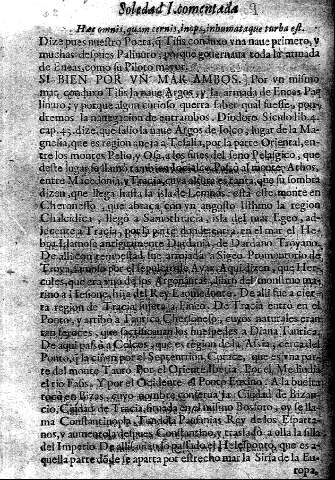 Soledad I. comentada
Hæc omnis, quam cernis, inops, inhumataque turba est.
Dize pues nuestro Poeta, q̃ Tifis conduxo vna naue primero, y
muchas despues Palinuro, porque gouernaua toda la armada
de Eneas, como su Piloto mayor.
SI BIEN POR VN MAR AMBOS.] Por vn mismo
mar, conduxo Tifis la naue Argos, y la armada de Eneas Pag
linuro, y porque algun curioso querra saber qual fuesse, pon-
dremos la nauegacion de entrambos. Diodoro Siculo lib. 4.
cap. 45. dize, que salio la naue Argos de Iolco, lugar de la Ma-
gnesia, que es region aneja a Tesalia, por la parte Oriental, en-
tre los montes Pelio, y Osa, a los fines del seno Pelasgico, que
deste lugar al monte Athos,
entre Macedonia, y Tracia, cuya altura es tanta, que su sombra
dizen, que llega hasta la isla de Lemno, está este monte en
Chersoneso, que abraça con vn angosto Isthmo la region
Chalcidica, llegó a Samothracia, isla del mar Egeo, ad-
jacente a Tracia, por la parte donde entra en el mar el He-
bro. Llamose antiguamente Dardania, de Dardano Troyano.
De alli con tempestad fue armada a Sigeo Promontorio de
Troya, famoso por el sepulcro de Ayax. Aqui dizen, que Her-
cules, que era vno de los Argonautas, libró del monstruo ma-
rino a Hesione, hija del Rey Laomedonte. De alli fue a cier-
ta region de Tracia sujeta a Fineo. De Tracia entró en el
Ponto, y arribó a Taurica Chersoneso, cuyos naturales eran
tan feroces, que sacrificauan los huespedes a Diana Taurica.
De aqui passó a Colcos, que es region de la Assia, cerca del
Ponto, q̃ la ciñen por el Septentrion, Corace, que es vna par-
te del monte Tauro. Por el Oriente Iberia. Por el Mediodia
el rio Fasis. Y por el Occidente el Ponto Euxino. A la buelta
tocó en Bizas, cuyo nombre conserua la Ciudad de Bizan-
cio, Ciudad de Tracia, situada en el mismo Bosforo, oy se lla-
ma Constantinopla. Fundola Pausanias Rey de los Esparta-
nos, y aumentola despues Constantino, y trasladó a olla la silla
del Imperio. De alli auiendo passado el Helesponto, que es a-
quella parte donde se aparta por estrecho mar la Siria de la Eu-
ropa,